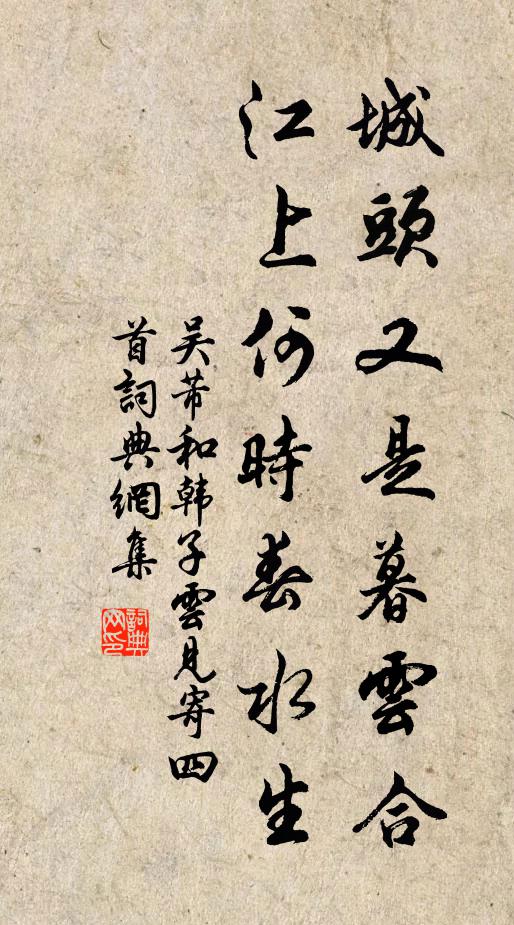 城頭又是暮雲合
江上何時春水生
吴芾和韩子雲見寄四
首詞典網集
詞典網印